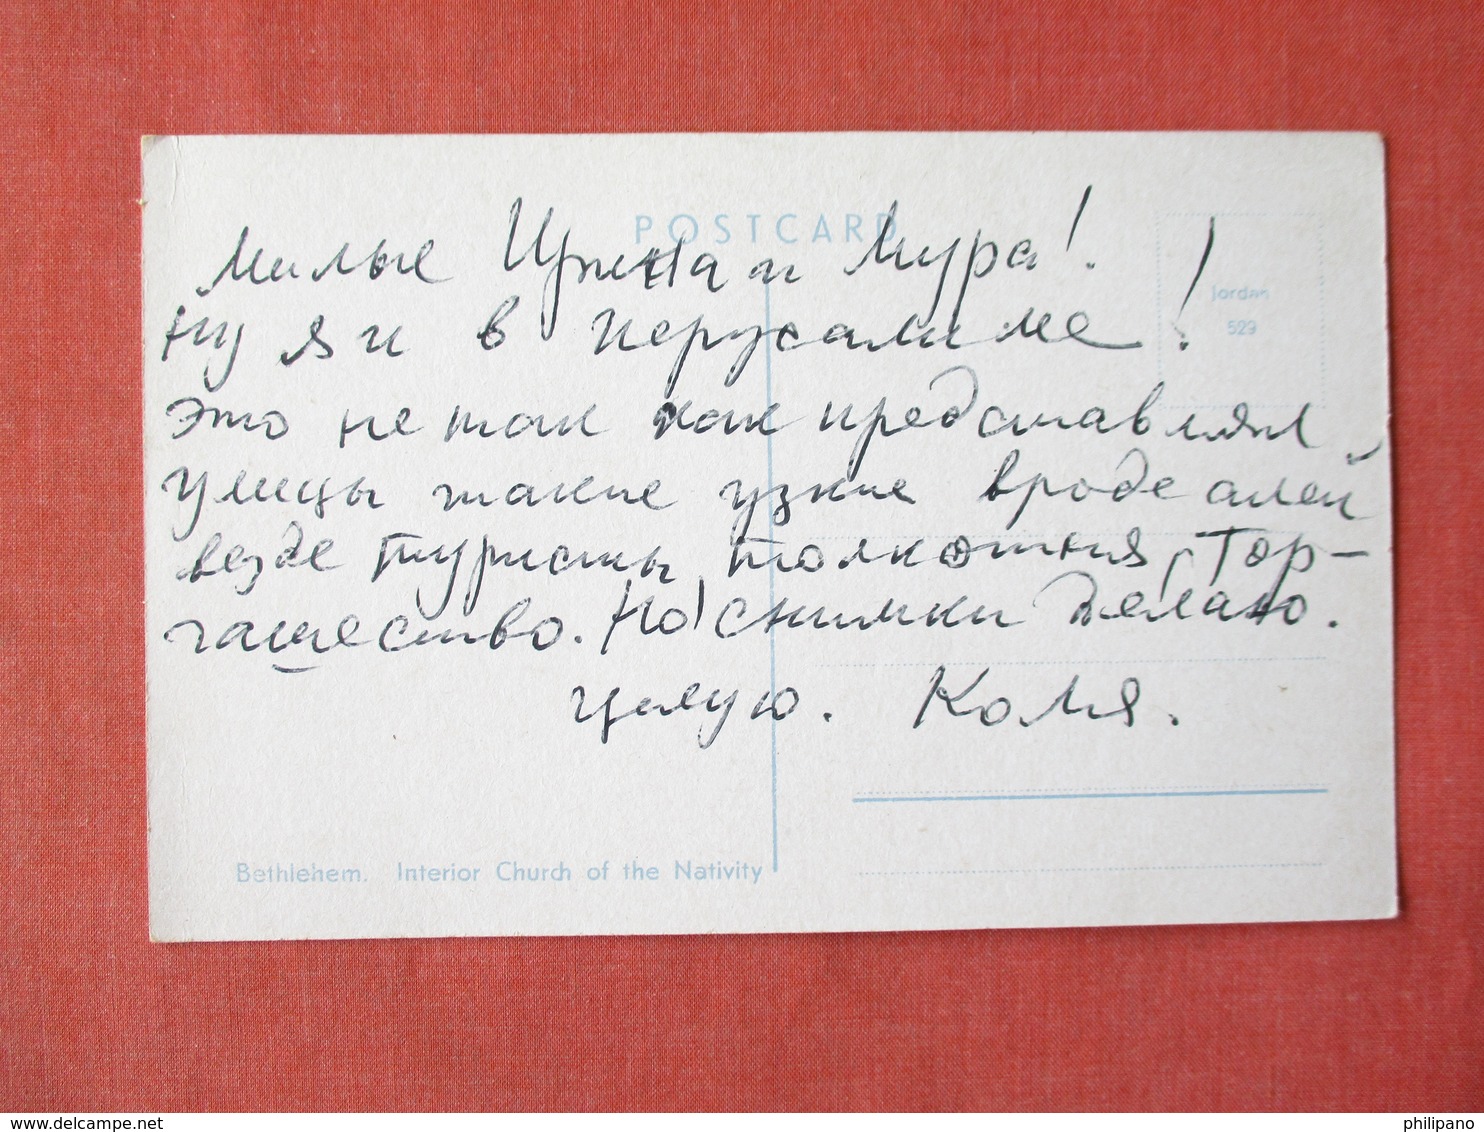 POSTCARD
Милые Ирина и Мура!
Ну я и в Иерусалиме!
Jordan
529
это не так как представлял,
улицы такие узкие вроде алей
везде туристы, толкотня, тор-
гашество. Но снимки делаю.
целую. Коля.
Bethlehem. Interior Church of the Nativity
philipano